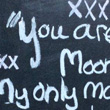 xxx
"You are
Moon
My only m